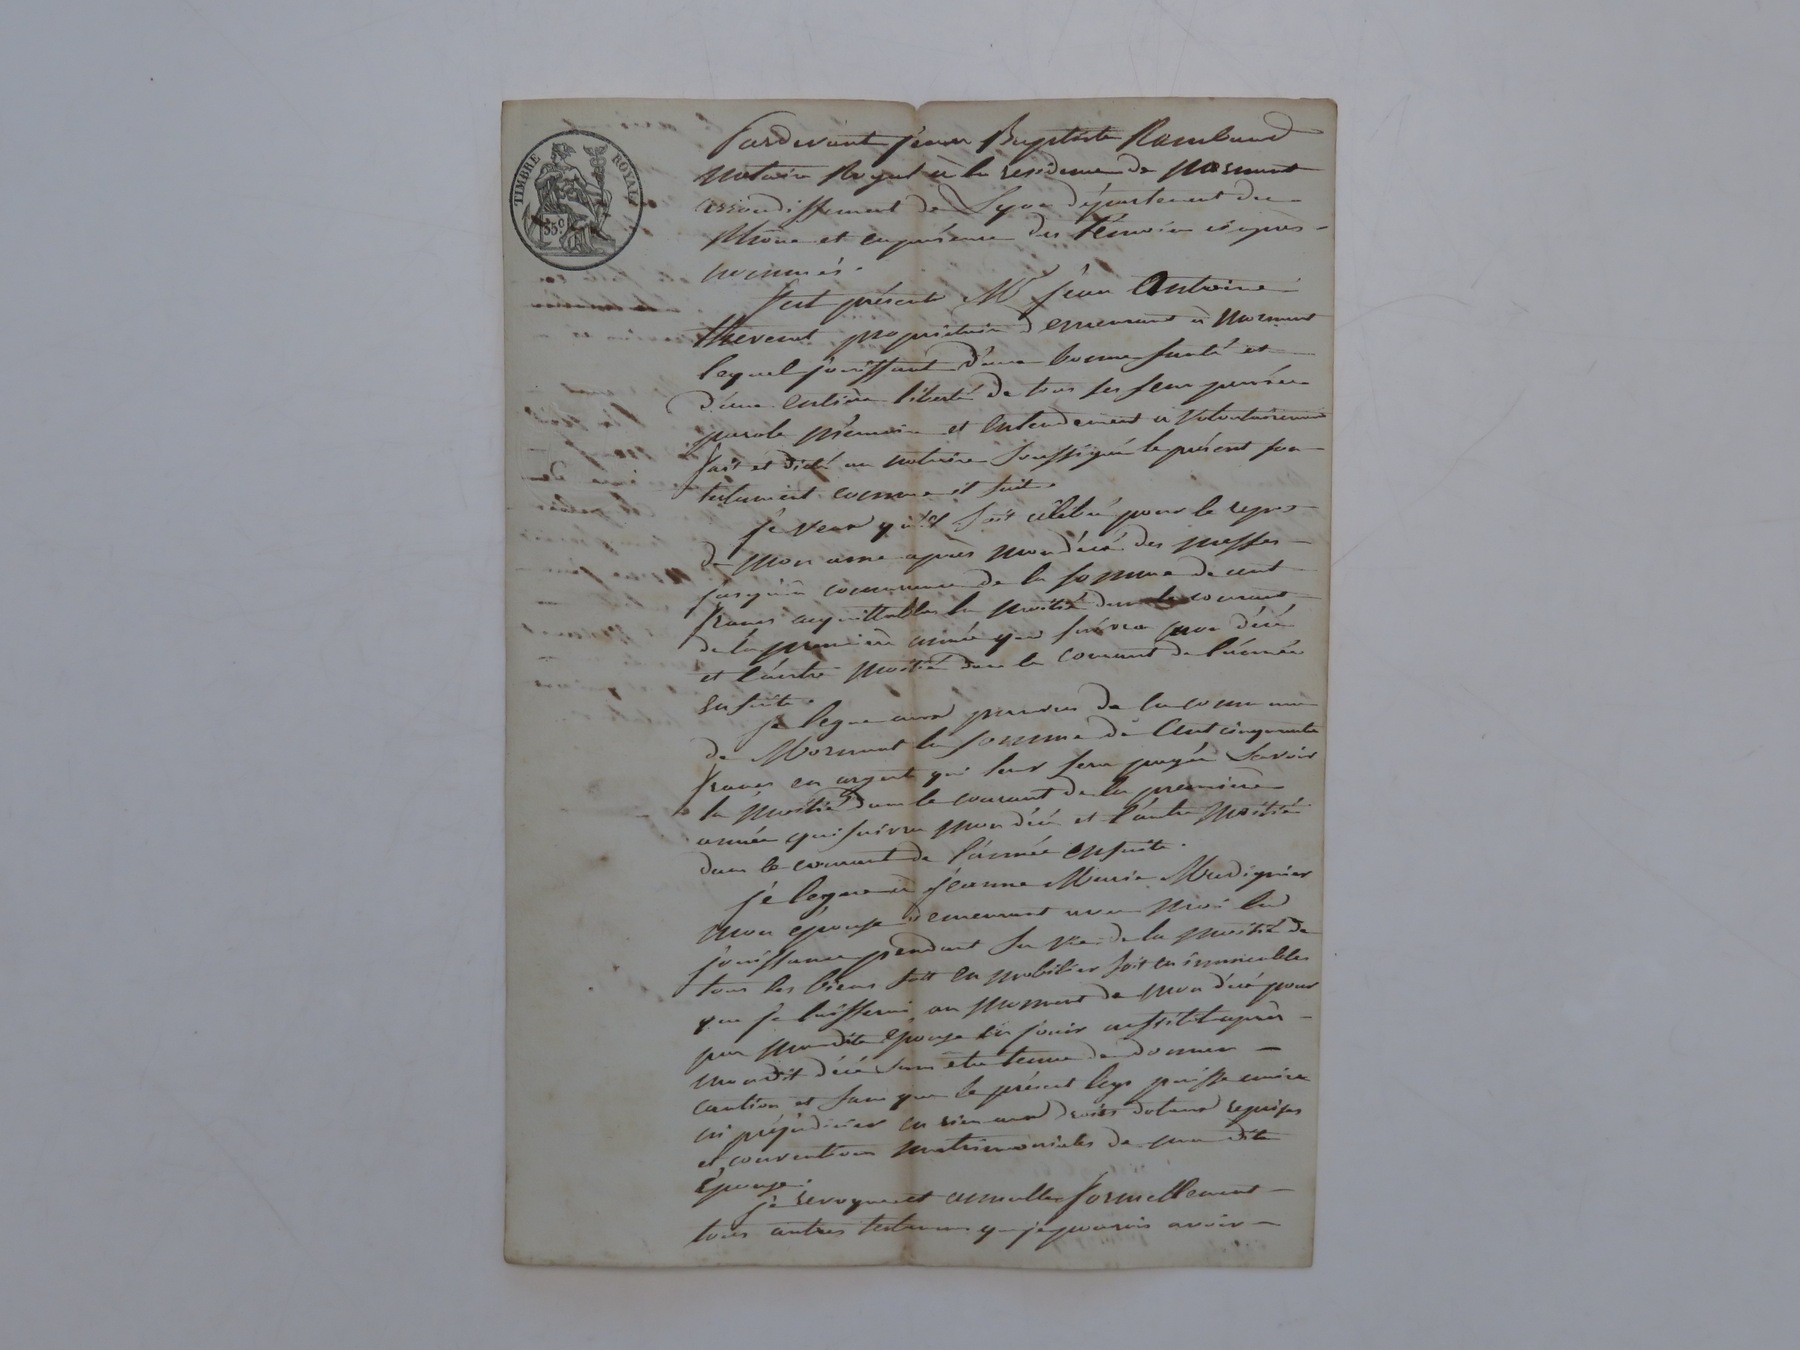 TIMBRE ROYAL
35 c.
Pardevant jean Baptiste Rambaud
notaire Royal à la residence de Mornant
arrondissement de Lyon département du
Rhône et en présence des témoins ci après
nommés.
Fut présent Mr jean Antoine
thevenet propriétaire demeurant à Mornant
lequel jouissant d'une bonne santé et
d'une entière liberté de tous ses sens pensée
parole mémoire et entendement a volontairement
fait et dicté au notaire soussigné le présent son
testament comme il suit.
je veux qu'il soit célébré pour le repos
de mon ame après mon décé des messes
jusqu'à concurrence de la somme de cent
francs acquittables la moitié dans le courant
de la premiere année que suivra mon décé
et l'autre moitié dans le courant de l'année
ensuite.
je legue aux pauvres de la commune
de Mornant la somme de Cent cinquante
francs en argent qui leur sera payée Savoir
la moitié dans le courant de la premiere
année qui suivra mon décé et l'autre moitié
dans le courant de l'année ensuite.
je legue à jeanne Marie Madignier
mon épouse demeurant avec moi la
jouissance pendant sa vie de la moitié de
tous les biens soit en mobilier soit en immeubles
que je laisserai au moment de mon décé pour
par madite épouse en jouir aussitot après
mondit décé sans etre tenue de donner
caution et sans que le présent legs puisse nuire
ni préjudicier en rien aux droits dotaux reprises
et conventions matrimoniales de madite
Epouse.
je revoque et annulle formellement
tous autres testamens que je pourrais avoir